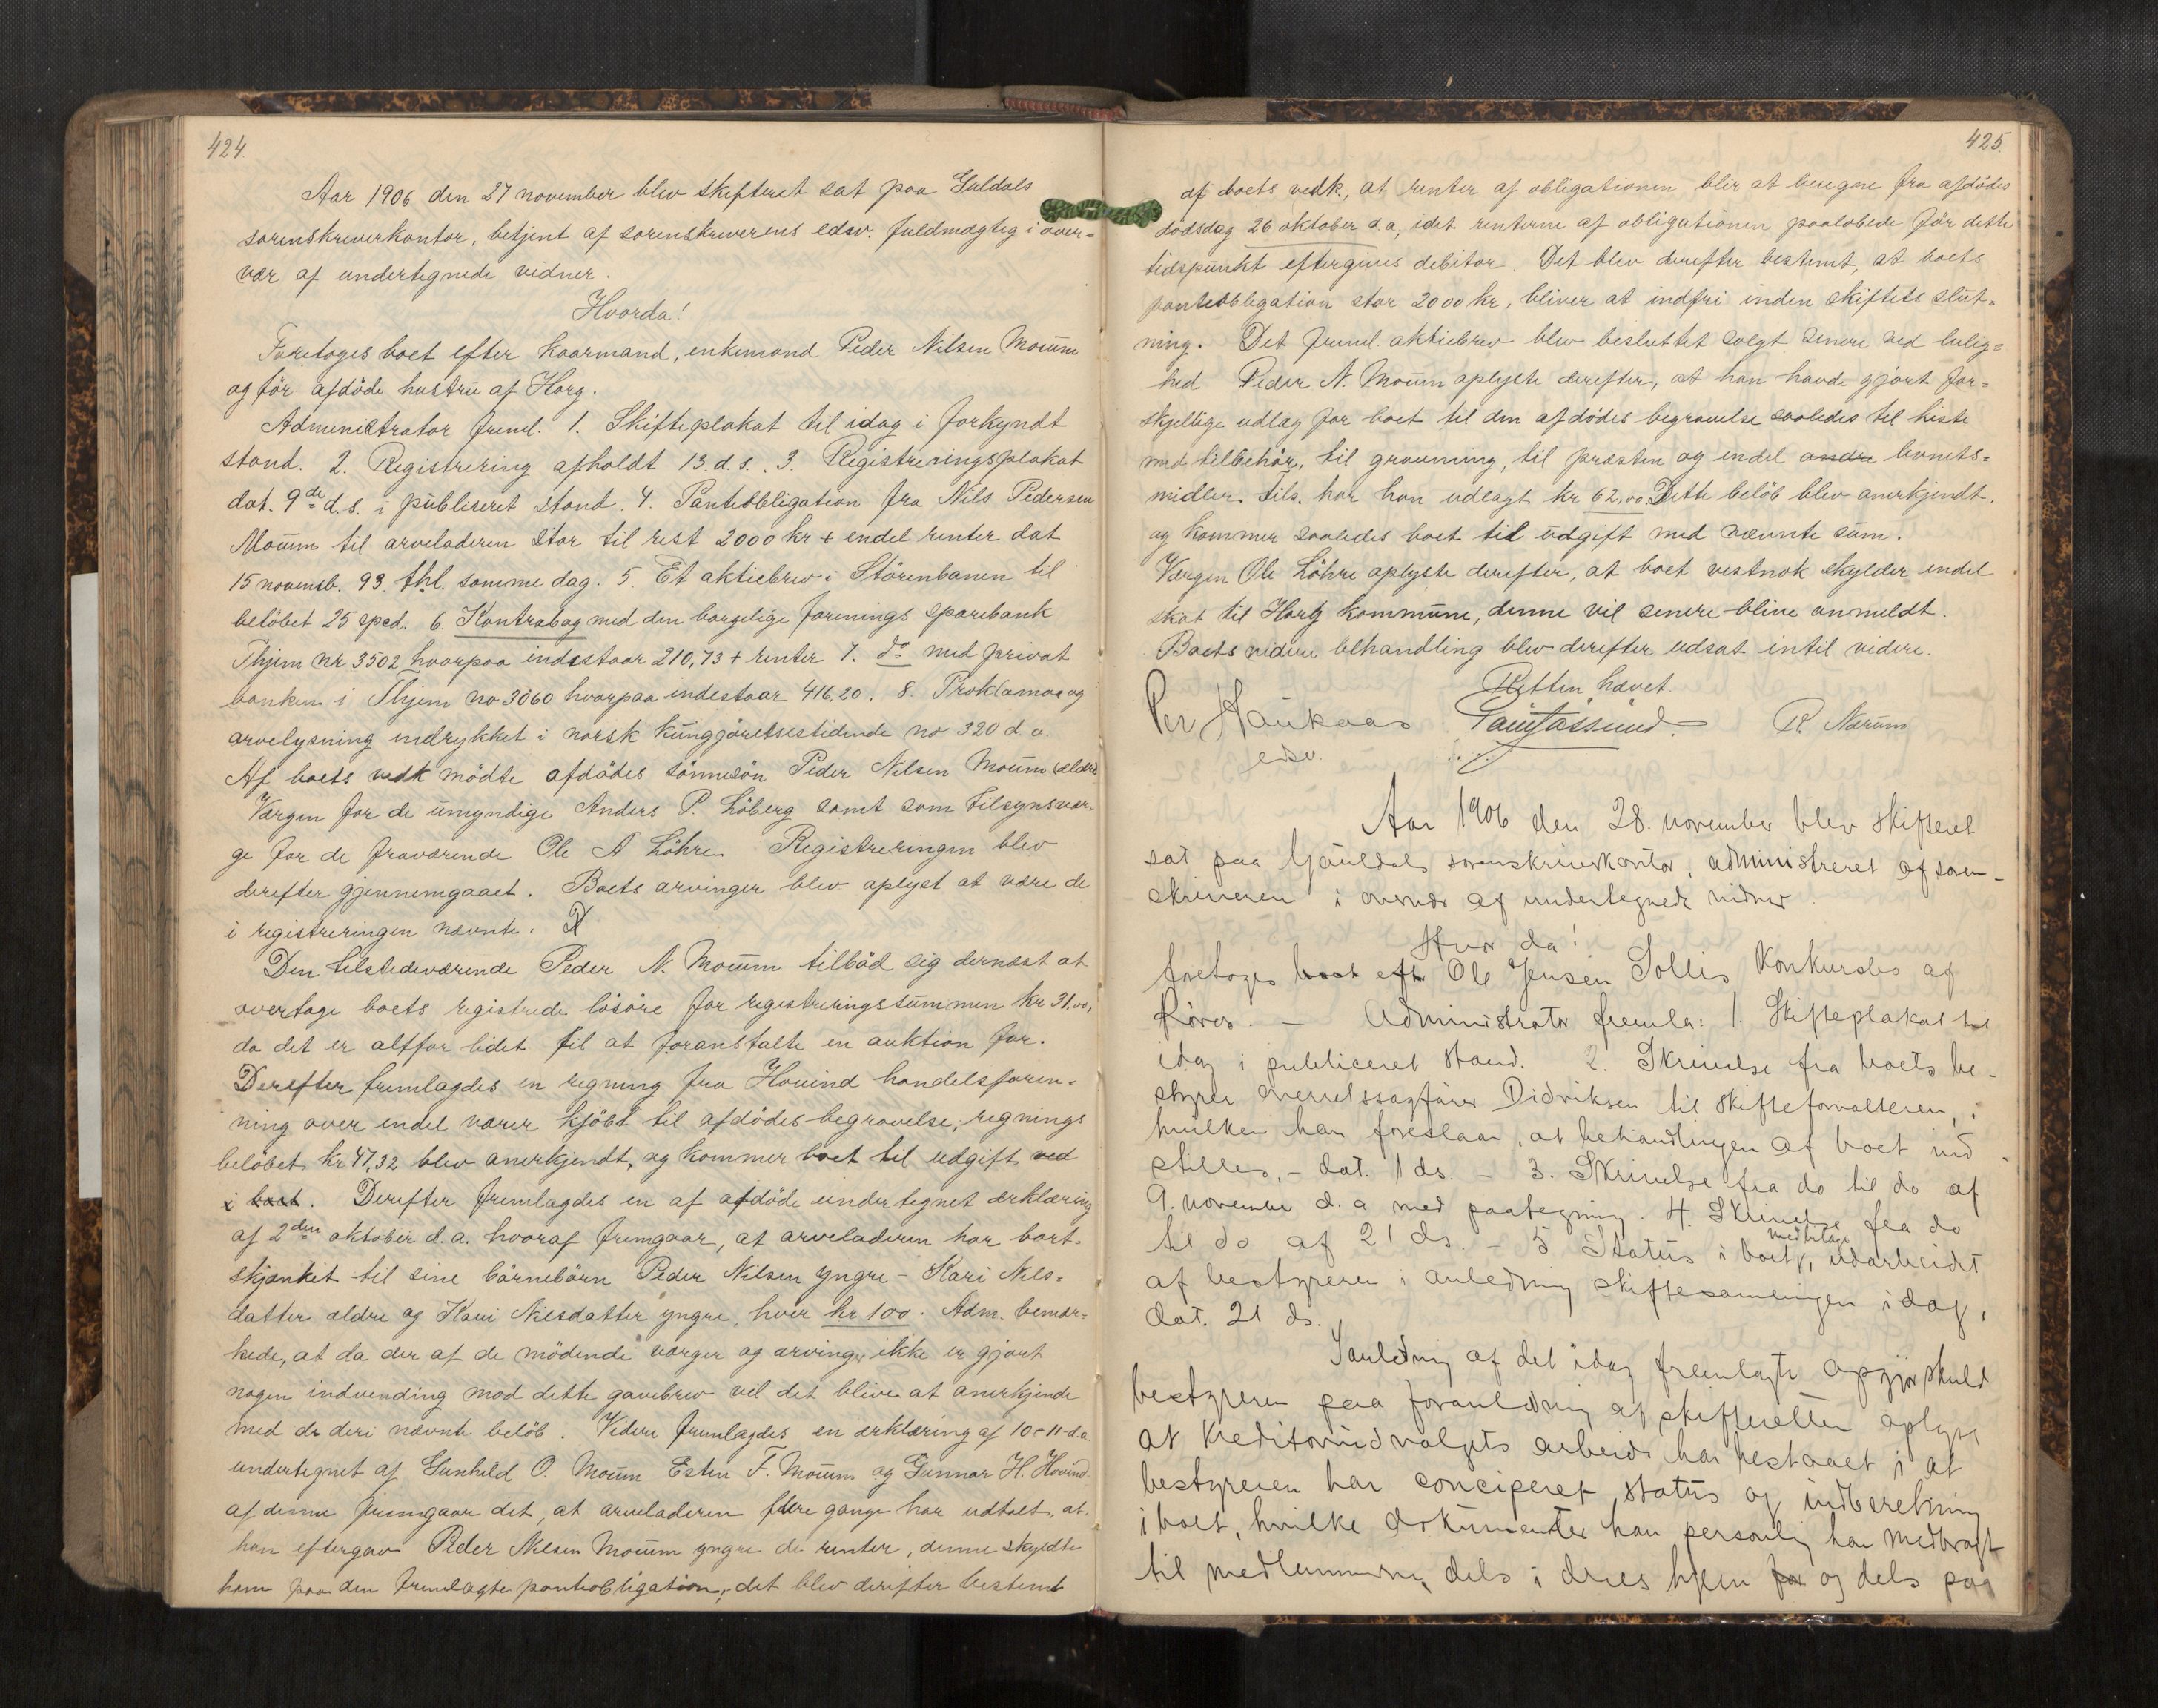 424.
Aar 1906 den 27 november blev skifteret sat paa Guldals
sorenskriverkontor, betjent af sorenskriverens edsv. fuldmægtig i over=
vær af undertegnede vidner.
Hvorda!
Foretoges boet efter kaarmand, enkemand Peder Nilsen Moum
og før afdøde hustru af Horg.
Administrator freml. 1. Skifteplakat til idag i forkyndt
stand. 2. Registrering afholdt 13.d.s. 3. Registreringsplakat
dat. 9de d.s. i publiseret stand. 4. Panteobligation fra Nils Pedersen
Moum til arveladeren stor til rest 2000 kr + endel renter dat
15 novemb. 93. thl. samme dag. 5. Et aktiebrev i Størenbanen til
beløbet 25 spd. 6. Kontrabog med den borgelige forenings sparebank
Thjem nr 3502 hvorpaa indestaar 210,73 + renter 7. do med privat
banken i Thjem no 3060 hvorpaa indestaar 416.20. 8. Proklama og
arvelysning indrykket i norsk kungjørelsestidende no 320 d.a.
Af boets vedk mødte afdødes sønnesøn Peder Nilsen Moum (ældre
Værgen for de umyndige Anders P. Løberg samt som tilsynsvær-
ge for de fraværende Ole A Løhre. Registreringen blev
derefter gjennemgaaet. Boets arvinger blev oplyst at være de
i registreringen nævnte.
Den tilstedeværende Peder N. Moum tilbød sig dernæst at
overtage boets registrede løsøre for registreringssummen kr 31.00,
da det er altfor lidet til at foranstalte en auktion for.
Derefter fremlagdes en regning fra Hovind handelsforen-
ning over endel varer kjøbt til afdødes begravelse, regnings
beløbet kr 47,32 blev anerkjendt, og kommer boet til udgift ved
i boet. Derefter fremlagdes en af afdøde undertegnet erklæring
af 2den oktober d.a. hvoraf fremgaar, at arveladeren har bort-
skjænket til sine børnebørn Peder Nilsen yngre - Kari Nils-
datter ældre og Kari Nilsdatter yngre, hver kr 100. Adm. bemær=
kede, at da der af de mødende værger og arvinger ikke er gjort
nogen indvending mod dette gavebrev vil det blive at anerkjende
med de deri nævnte beløb. Videre fremlagdes en erklæring af 10-11-d.a
undertegnet af Gunhild O. Moum Esten F. Moum og Gunnar H. Hovind.
af denne fremgaar det, at arveladeren flere gange har udtalt, at
han eftergav Peder Nilsen Moum yngre de renter, denne skyldte
ham paa den fremlagte panteobligation; det blev derefter bestemt
425.
af boets vedk., at renter af obligationen blir at beregne fra afdødes
dødsdag 26 oktober d.a, idet renterne af obligationen paaløbede før dette
tidspunkt eftergives debitor. Det blev derefter bestemt, at boets
panteobligation stor 2000 kr, bliver at indfri inden skiftets slut=
ning. Det freml. aktiebrev blev besluttet solgt senere ved leilig=
hed Peder N. Moum oplyste derefter, at han havde gjort for=
skjellige udlæg for boet til den afdødes begravelse saaledes til kiste
med tilbehør, til gravning, til præsten og endel andre levnets=
midler. tils. har han udlagt kr 62,00. Dette beløb blev anerkjendt.
og kommer saaledes boet til udgift med nævnte sum.
Værgen Ole Løhre oplyste derefter, at boet vestnok skylder endel
skat til Horg kommune, denne vil senere blive anmeldt.
Boets videre behandling blev derefter udsat intil videre.
Retten hævet.
Per Haukaas R. Nærum
edsv.
Aar 1906 den 28. november blev skifteret
sat paa Gauldals sorenskriverkontor, administreret af soren-
skriveren i overvær af undertegnede vidner.
Hvor da!
foretoges boet eft Ole Jensen Sollis konkursbo af
Røros. - Administrator fremla: 1. Skifteplakat til
idag i publiceret stand. 2. Skrivelse fra boets be-
styrer overretssagfører Didriksen til skifteforvalteren, i
hvilken han foreslaar, at behandlingen af boet ind
stilles, - dat. 1 ds. - 3. Skrivelse fra do til do af
9. november d.a med paategning. 4. Skrivelse fra do
til do af 21 ds. - 5 Status i boet, udarbeidet
af bestyreren i anledning skiftesamlingen idag,
dat. 21 ds.
I anledning af det idag fremlagte opgjør skuld
bestyreren paa foranledning af skifteretten oplyse
at kreditorudvalgets arbeide har bestaaet i at
bestyreren har conciperet status og indberetning
i boet, hvilke dokumenter han personlig har medbragt
til medlemmerne, dels i deres hjem for og dels paa